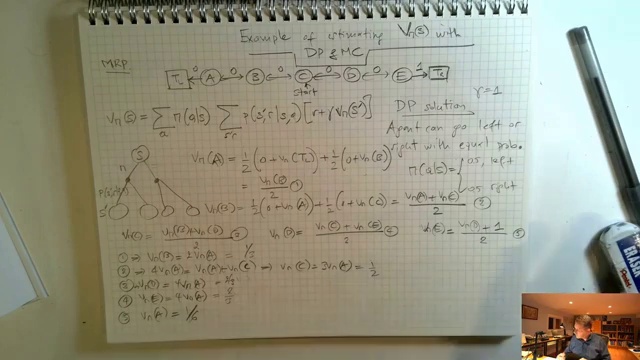 Example of estimating Vπ(s) with
DP & MC
MRP
T 0 A 0 B 0 C 0 D 0 E 1 T
start
Vπ(s) = Σa π(a|s) Σs',r p(s',r|s,a) [r+γVπ(s')]
DP solution γ=1
Agent can go left or
right with equal prob.
π(a|s) = { 0.5, left
0.5 right
S
π
s'
Vπ(A) = 1/2 (0+Vπ(TL)) + 1/2 (0+Vπ(B))
= Vπ(B)/2 ①
Vπ(B) = 1/2 (0+Vπ(A)) + 1/2 (0+Vπ(C)) =
②
Vπ(C) = ③ Vπ(D) = Vπ(C)+Vπ(E)/2 ④ Vπ(E) = Vπ(D)+1/2 ⑤
① ⇒ Vπ(B) = 2Vπ(A)
② ⇒ 4Vπ(A) = Vπ(A)+Vπ(C) ⇒ Vπ(C) = 3Vπ(A) = 1/2
③ ⇒ Vπ(D) = 4Vπ(A)
④
⑤ Vπ(A) = 1/6